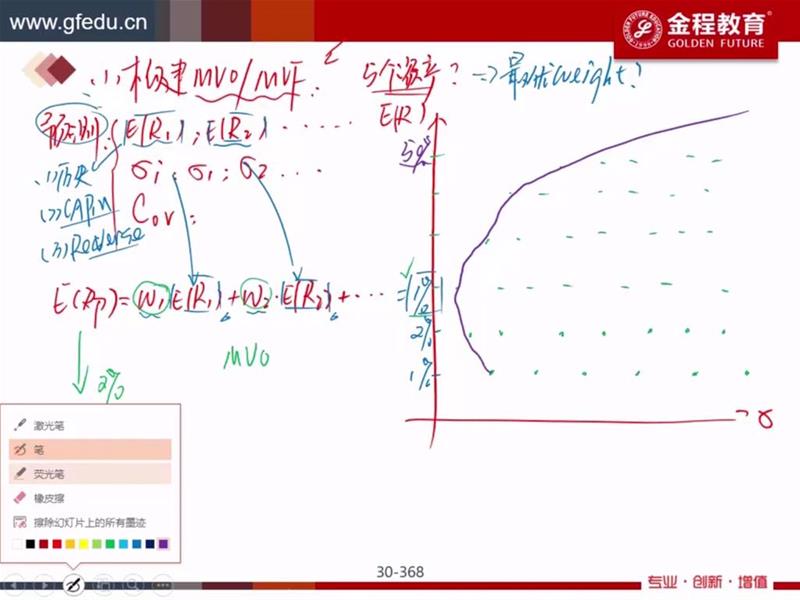 www.gfedu.cn
金程教育
GOLDEN FUTURE
(1) 构建MVO/MVF:
5个资产? => 最优weight?
预测: E(R1); E(R2) ·····
E(R)
5%
(1)历史
σi: σ1; σ2 ···
(2)CAPM
Cov:
(3)Reverse
E(Rp)=W1·E(R1)+W2·E(R2)+··· =1%
2%
1%
MVO
2%
σ
激光笔
笔
荧光笔
橡皮擦
擦除幻灯片上的所有墨迹
30-368
专业·创新·增值